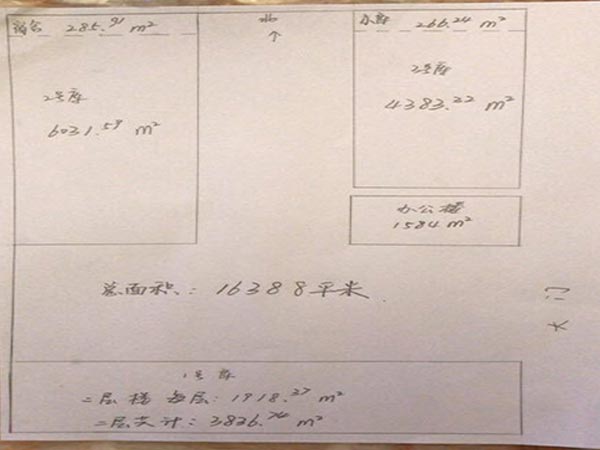 285.91 m²
北
小库 266.24 m²
2号库
6031.59 m²
3号库
4383.22 m²
办公楼
1584 m²
总面积：16388平米
大门
1号库
二层楼 每层：1918.37 m²
二层共计：3836.74 m²